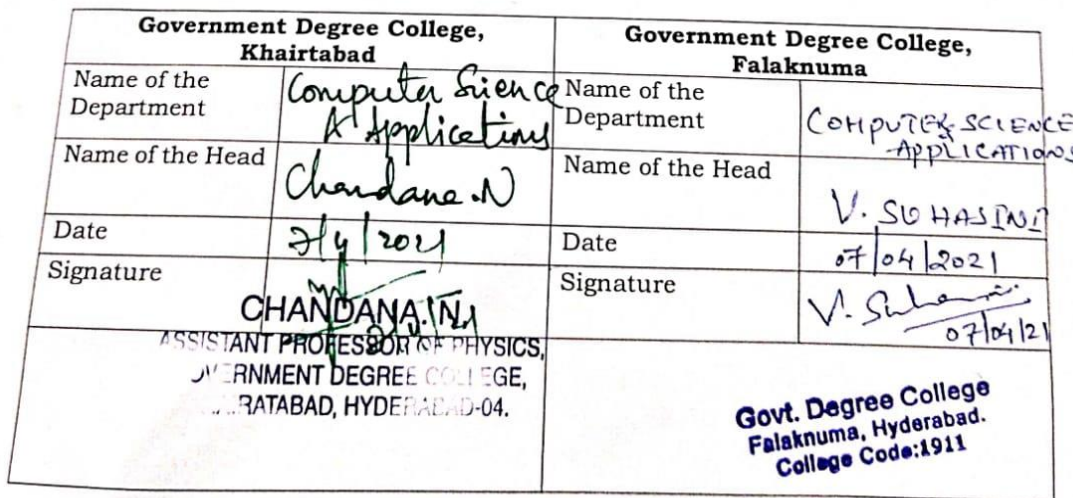 Government Degree College,
Khairtabad
Government Degree College,
Falaknuma
Name of the
Department
Computer Science
& Applications
Name of the
Department
COMPUTER SCIENCE
APPLICATIONS
Name of the Head
Chandana.N
Name of the Head
V. SUHASINI
Date
7/4/2021
Date
07/04/2021
Signature
CHANDANA.N
ASSISTANT PROFESSOR OF PHYSICS,
ERNMENT DEGREE COLLEGE,
RATABAD, HYDERABAD-04.
Signature
V. Suhasini
07/04/21
Govt. Degree College
Falaknuma, Hyderabad.
College Code:1911